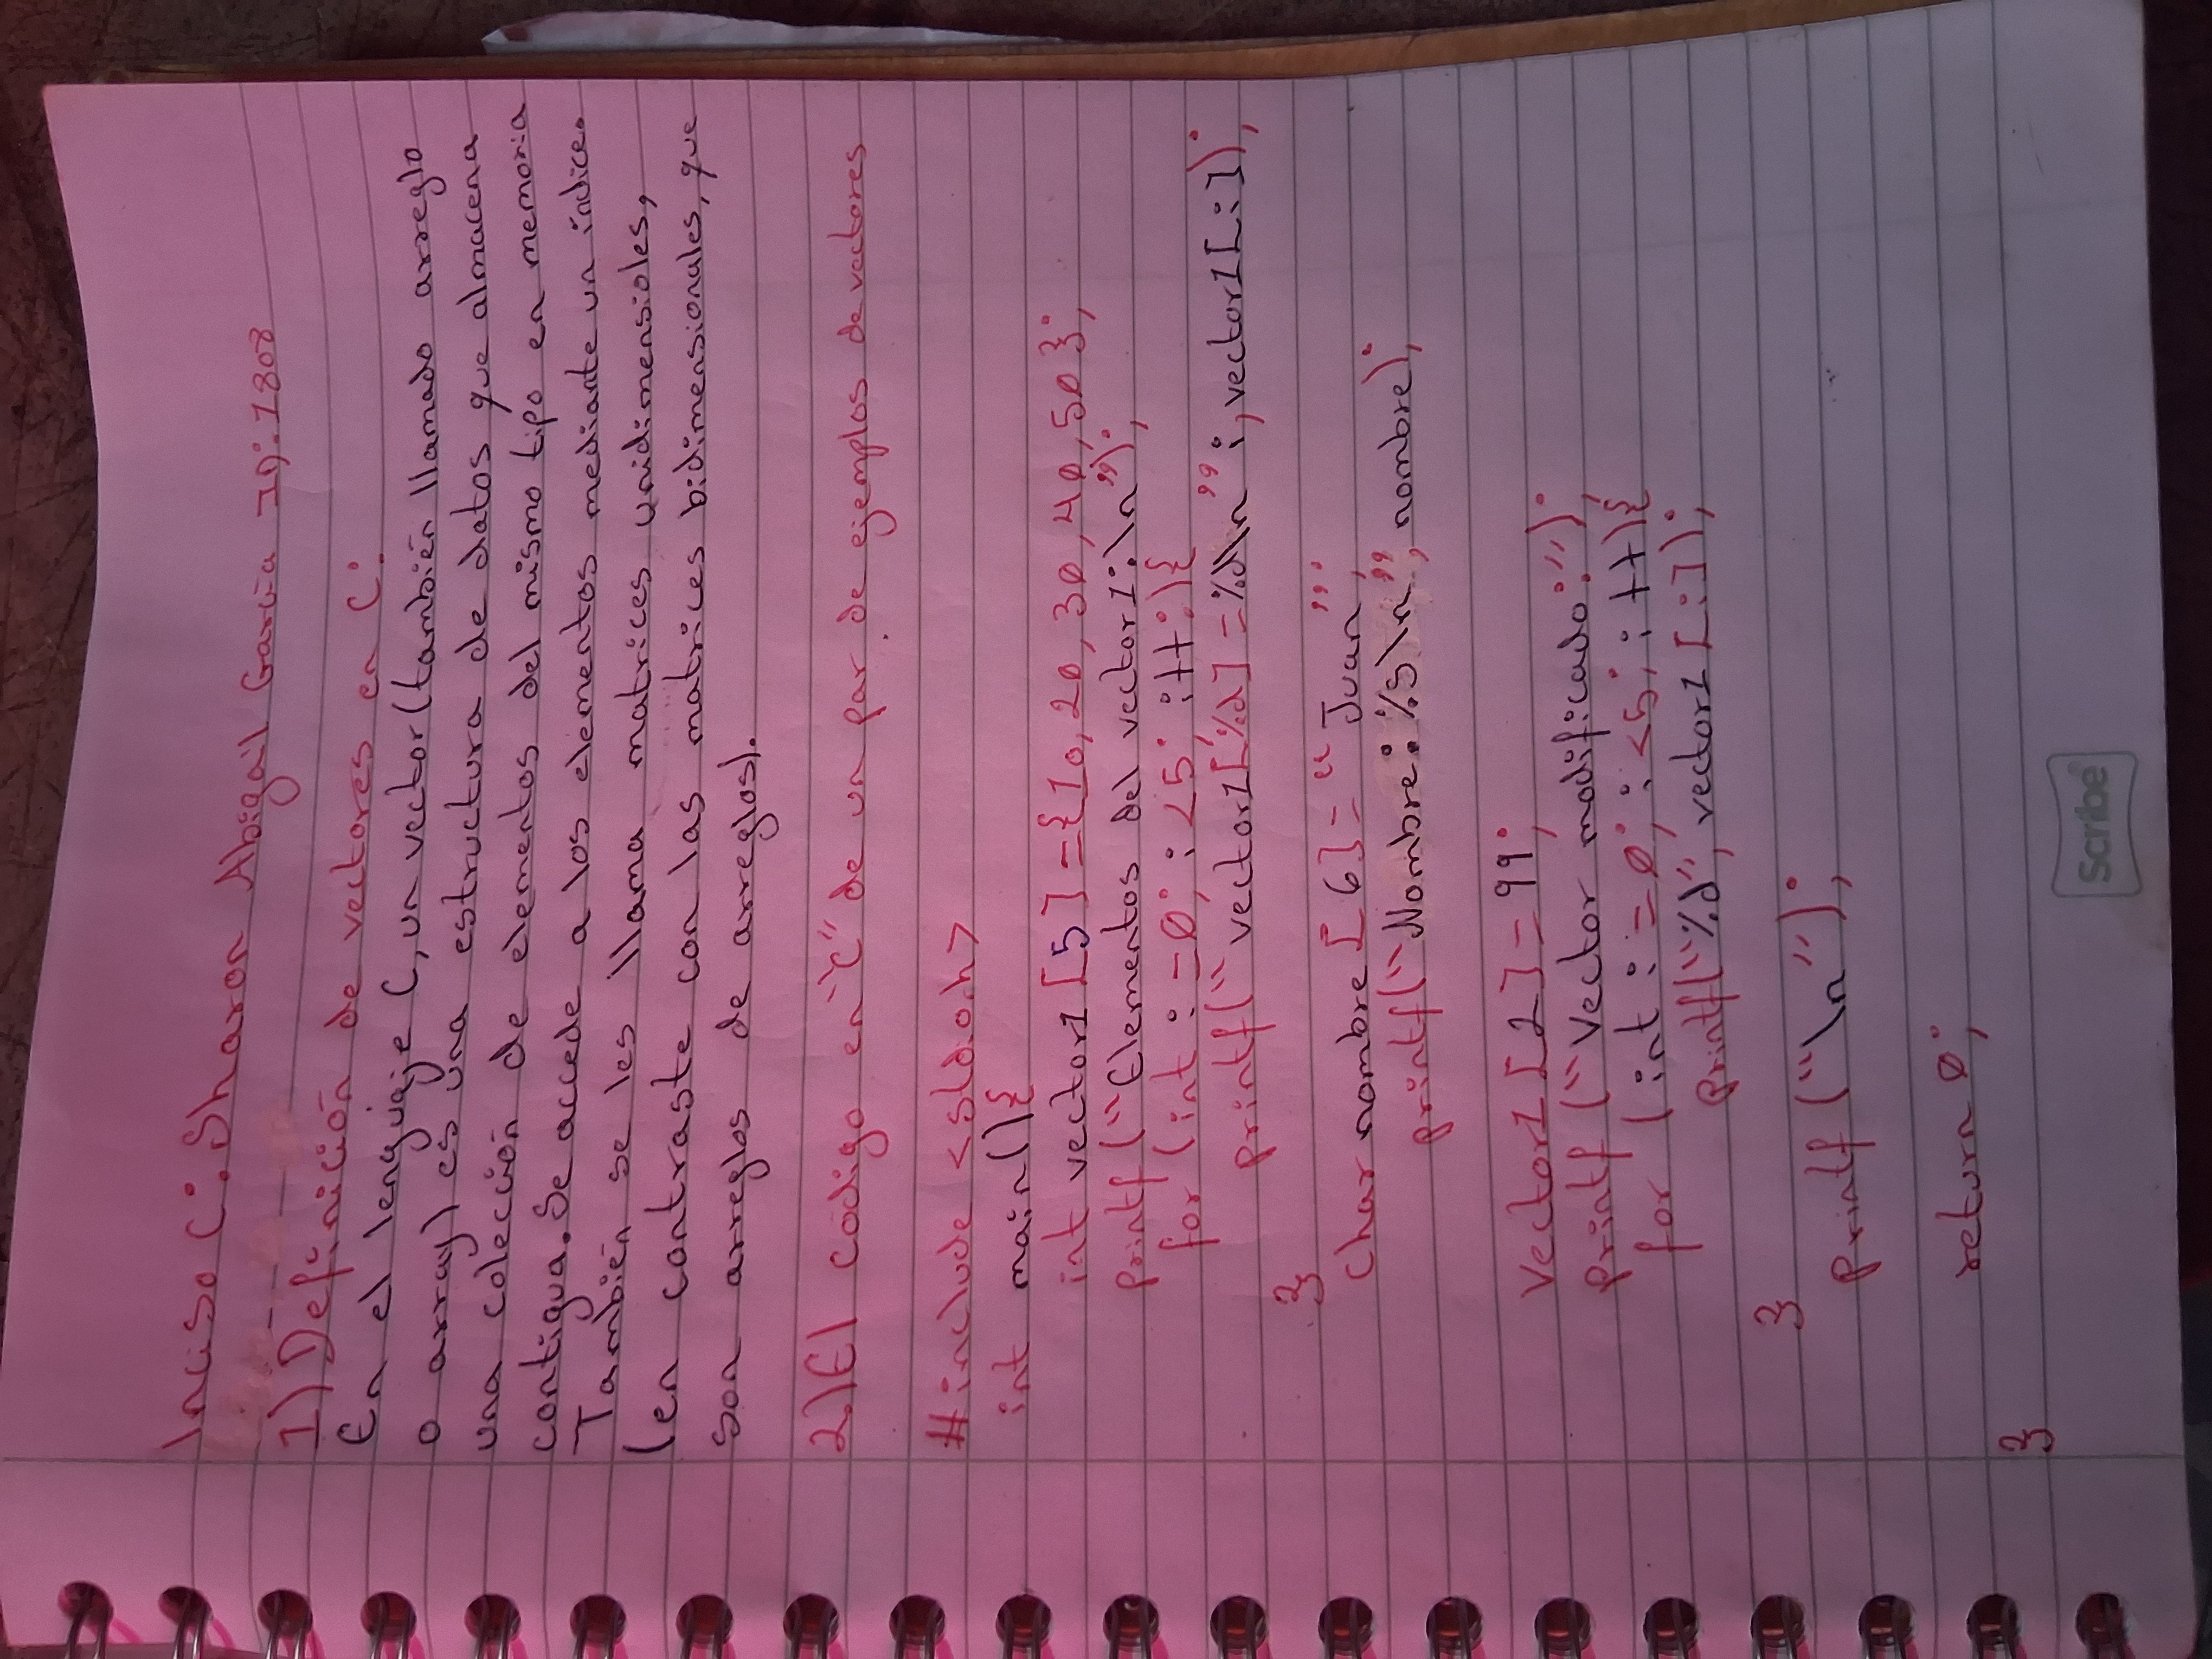 Inciso C: Sharon Abigail García ID:1808
1) Definición de vectores en C:
En el lenguaje C, un vector (también llamado arreglo
o array) es una estructura de datos que almacena
una colección de elementos del mismo tipo en memoria
contigua. Se accede a los elementos mediante un índice.
También se les llama matrices unidimensioles,
(en contraste con las matrices bidimensionales, que
son arreglos de arreglos).
2.) El código en "C" de un par de ejemplos de vectores
#include <stdo.h>
int main(){
int vector1[5]={10,20,30,40,50};
printf("Elementos del vector1:\n");
for (int i=0; i<5; i++i){
printf("vector1[%d]=%d\n";,vector1[i]);
}
Char nombre[6]="Juan";
printf("Nombre:%s\n", nombre);
Vector1[2]=99;
printf("Vector modificado:");
for (int i=0; i<5; i++){
printf("%d", vector1[i]);
}
printf("\n");
return 0;
}
Scribe